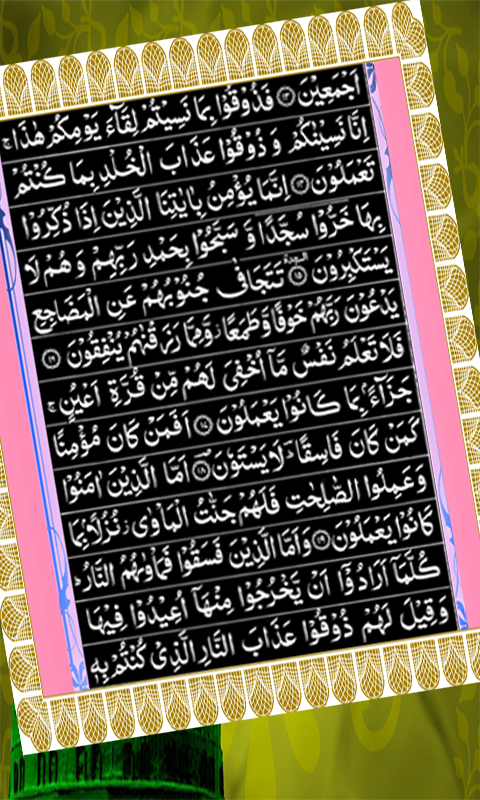 اَجْمَعِيْنَ ﴿۱۳﴾ فَذُوْقُوْا بِمَا نَسِيْتُمْ لِقَآءَ يَوْمِكُمْ هٰذَا ۚ
اِنَّا نَسِيْنٰكُمْ وَ ذُوْقُوْا عَذَابَ الْخُلْدِ بِمَا كُنْتُمْ
تَعْمَلُوْنَ ﴿۱۴﴾ اِنَّمَا يُؤْمِنُ بِاٰيٰتِنَا الَّذِيْنَ اِذَا ذُكِّرُوْا
بِهَا خَرُّوْا سُجَّدًا وَّ سَبَّحُوْا بِحَمْدِ رَبِّهِمْ وَ هُمْ لَا
يَسْتَكْبِرُوْنَ ﴿۱۵﴾ تَتَجَافٰى جُنُوْبُهُمْ عَنِ الْمَضَاجِعِ
يَدْعُوْنَ رَبَّهُمْ خَوْفًا وَّ طَمَعًا ۫ وَّ مِمَّا رَزَقْنٰهُمْ يُنْفِقُوْنَ ﴿۱۶﴾
فَلَا تَعْلَمُ نَفْسٌ مَّاۤ اُخْفِيَ لَهُمْ مِّنْ قُرَّةِ اَعْيُنٍ ۚ
جَزَآءًۢ بِمَا كَانُوْا يَعْمَلُوْنَ ﴿۱۷﴾ اَفَمَنْ كَانَ مُؤْمِنًا
كَمَنْ كَانَ فَاسِقًا ؕ لَا يَسْتَوٗنَ ﴿۱۸﴾ اَمَّا الَّذِيْنَ اٰمَنُوْا
وَ عَمِلُوا الصّٰلِحٰتِ فَلَهُمْ جَنّٰتُ الْمَاْوٰى ؗ نُزُلًۢا بِمَا
كَانُوْا يَعْمَلُوْنَ ﴿۱۹﴾ وَ اَمَّا الَّذِيْنَ فَسَقُوْا فَمَاْوٰىهُمُ النَّارُ ؕ
كُلَّمَاۤ اَرَادُوْۤا اَنْ يَّخْرُجُوْا مِنْهَاۤ اُعِيْدُوْا فِيْهَا
وَ قِيْلَ لَهُمْ ذُوْقُوْا عَذَابَ النَّارِ الَّذِيْ كُنْتُمْ بِهٖ